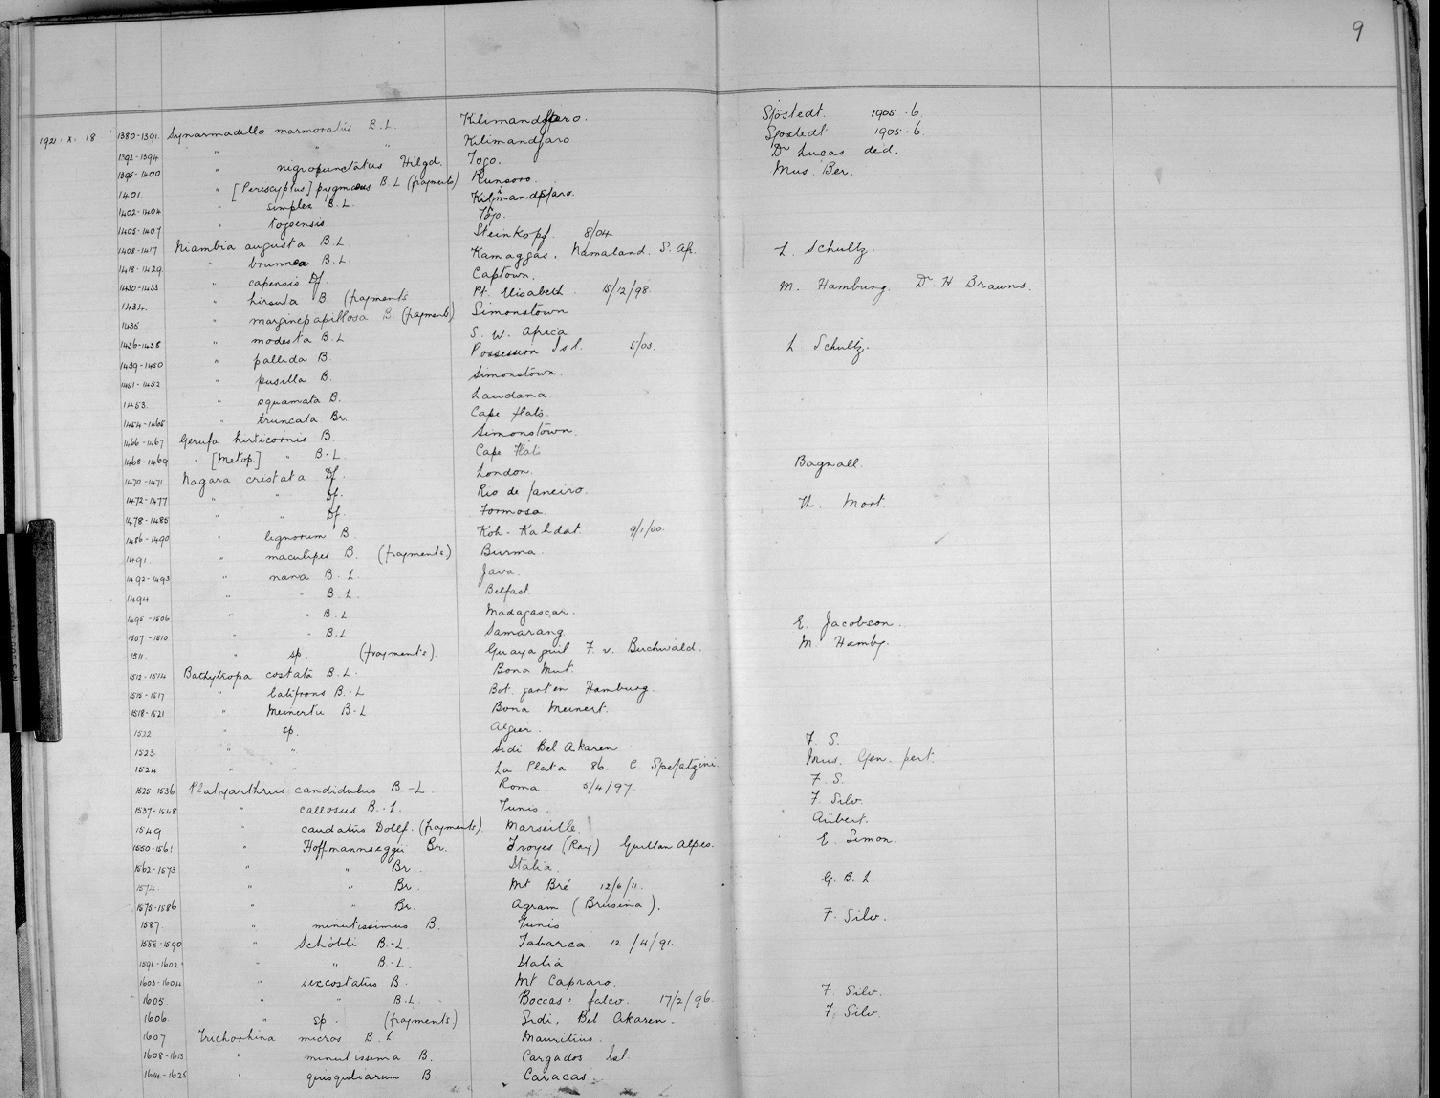 9
1921. X. 18 1389-1391 Synarmadillo marmoratus B.L. Kilimandjaro. Sjöstedt. 1905-6.
1392-1394 " " " Kilimandjaro Sjöstedt 1905-6.
1395-1400 " nigropunctatus Hilgd. Togo. Dr Lucas ded.
1401. " [Periscyphus] pygmaeus B.L (fragments) Runsoro. Mus. Ber.
1402-1404 " simplex B.L. Kilimandjaro.
1405-1407 " togoensis Togo.
1408-1417 Niambia angusta B.L Steinkopf. 8/04
1418-1429. " brunnea B.L Kamaggas, Namaland. S. Af. L. Schultz.
1430-1433 " capensis Df. Captown.
1434. " hirsuta B (fragments Pt. Elisabeth 15/12/98. M. Hamburg. Dr H Brauns.
1435 " marginepapillosa B (fragments) Simonstown
1436-1438 " modesta B.L S. W. Africa
1439-1450 " pallida B. Possession Isl. 5/03. L Schultz.
1451-1452 " pusilla B. Simonstown.
1453. " squamata B. Landana.
1454-1465 " truncata Br. Cape Flats.
1466-1467 Gerufa hirticornis B. Simonstown.
1468-1469 " [Metop.] " B.L. Cape Flats
1470-1471 Nagara cristata Df. London. Bagnall.
1472-1477 " " Df. Rio de Janeiro.
1478-1485 " " Df. Formosa. Th. Mort.
1486-1490 " lignorum B. Koh-Kahdat. 9/1/00.
1491. " maculipes B. (fragments) Burma.
1492-1493 " nana B.L. Java.
1494 " " B.L. Belfast
1495-1506 " " B.L Madagascar.
1507-1510 " " B.L Samarang. E. Jacobson.
1511. " sp. (fragments). Guayaquil F. v. Buchwald. M. Hamby.
1512-1514 Bathytropa costata B.L. Bona Mut.
1515-1517 " latifrons B.L Bot. garten Hamburg.
1518-1521 " Meinertii B-L Bona Meinert.
1522 " sp. Algier.
1523. " " Sidi Bel Akaren F. S.
1524 " La Plata 86. C. Spegazzini. Mus. Gen. pert.
1525-1536 Platyarthrus candidulus B-L. Roma. 5/4/97. F. S.
1537-1548 " callosus B.-L. Tunis. F. Silv.
1549 " caudatus Dollf. (fragments) Marseille. Aubert.
1550-1561 " Hoffmannseggii Br. Troyes (Ray) E. Simon.
1562-1573 " " Br. Italia.
1574. " " Br. Mt Bré 12/6/11. G. B. L
1575-1586 " " Br. Agram (Brusina).
1587. " minutissimus B. Tunis F. Silv.
1588-1590 " Schöbli B.-L. Tabarca 12/4/91.
1591-1602 " " B.-L. Italia
1603-1604 " sexcostatus B. Mt Capraro.
1605 " " B.L. Bocca: falco. 17/2/96. F. Silv.
1606. " sp. (fragments) Sidi. Bel Akaren. F. Silv.
1607 Trichorhina micros B.L Mauritius.
1608-1613 " minutissima B. Cargados Isl.
1614-1625 " quisquiliarum B Caracas.